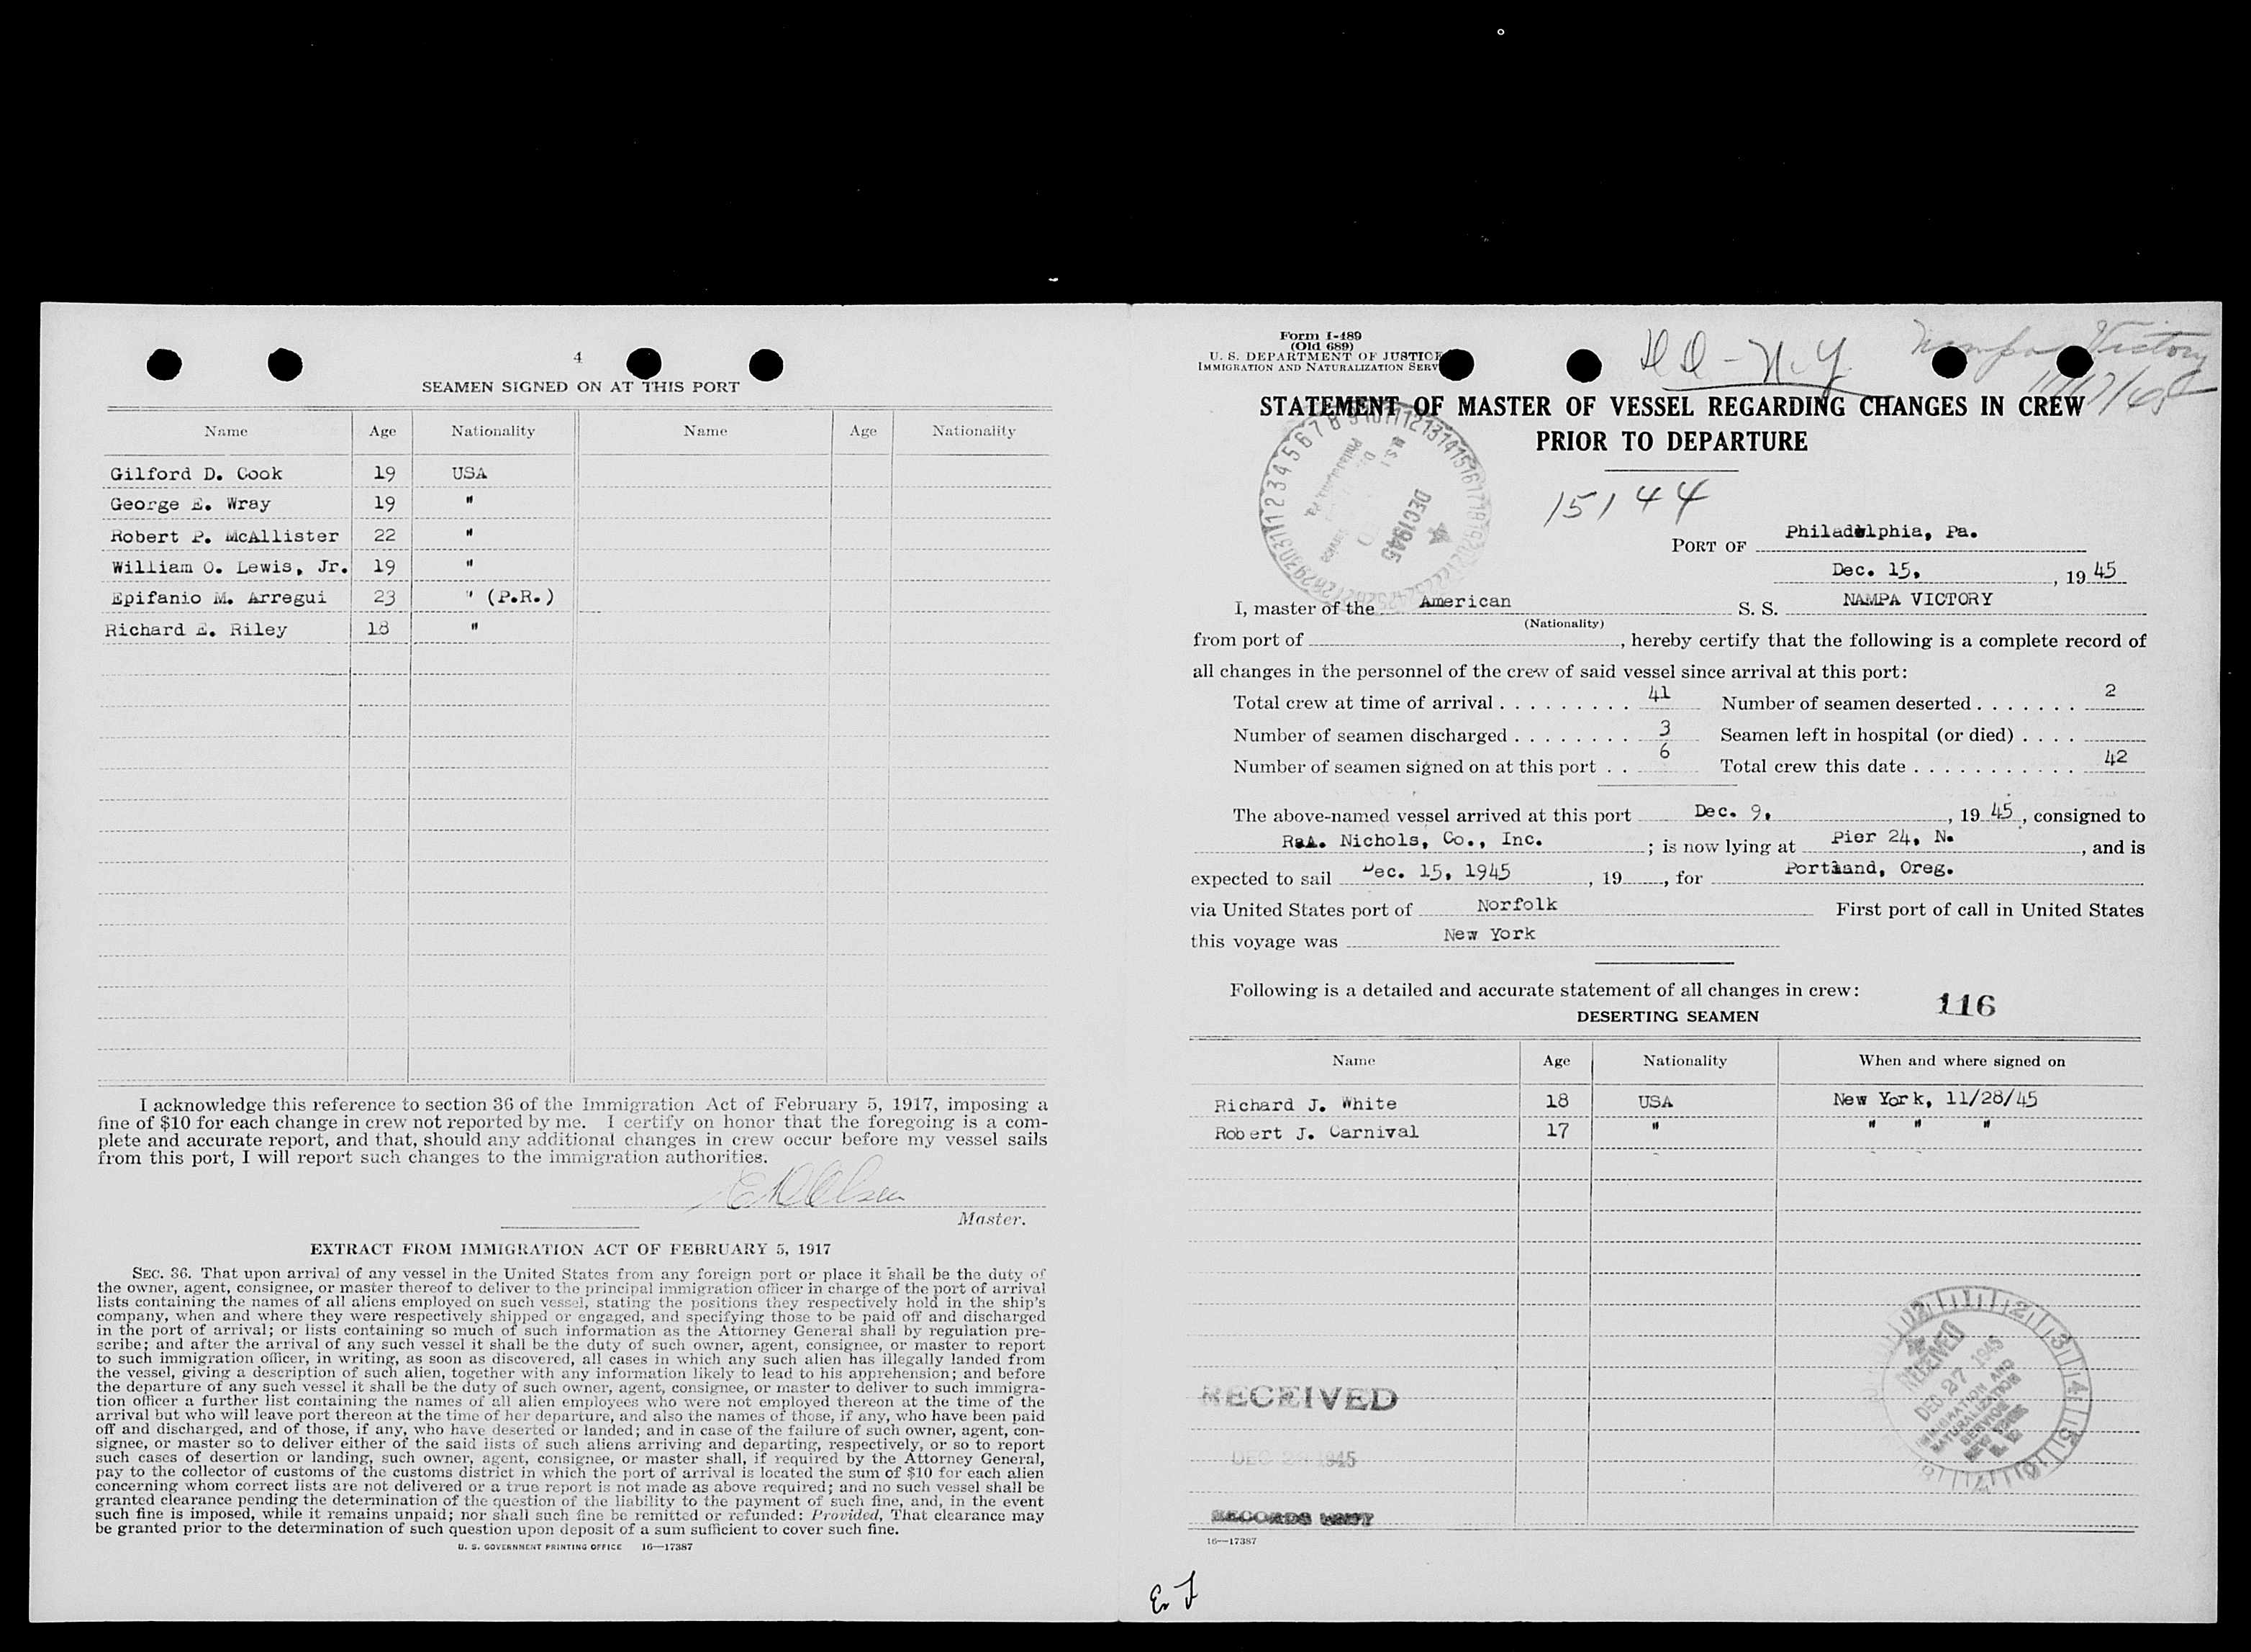 4
SEAMEN SIGNED ON AT THIS PORT
Name Age Nationality Name Age Nationality
Gilford D. Cook 19 USA
George E. Wray 19 "
Robert P. McAllister 22 "
William O. Lewis, Jr. 19 "
Epifanio M. Arregui 23 " (P.R.)
Richard E. Riley 18 "
I acknowledge this reference to section 36 of the Immigration Act of February 5, 1917, imposing a
fine of $10 for each change in crew not reported by me. I certify on honor that the foregoing is a com-
plete and accurate report, and that, should any additional changes in crew occur before my vessel sails
from this port, I will report such changes to the immigration authorities.
Master.
EXTRACT FROM IMMIGRATION ACT OF FEBRUARY 5, 1917
SEC. 36. That upon arrival of any vessel in the United States from any foreign port or place it shall be the duty of
the owner, agent, consignee, or master thereof to deliver to the principal immigration officer in charge of the port of arrival
lists containing the names of all aliens employed on such vessel, stating the positions they respectively hold in the ship's
company, when and where they were respectively shipped or engaged, and specifying those to be paid off and discharged
in the port of arrival; or lists containing so much of such information as the Attorney General shall by regulation pre-
scribe; and after the arrival of any such vessel it shall be the duty of such owner, agent, consignee, or master to report
to such immigration officer, in writing, as soon as discovered, all cases in which any such alien has illegally landed from
the vessel, giving a description of such alien, together with any information likely to lead to his apprehension; and before
the departure of any such vessel it shall be the duty of such owner, agent, consignee, or master to deliver to such immigra-
tion officer a further list containing the names of all alien employees who were not employed thereon at the time of the
arrival but who will leave port thereon at the time of her departure, and also the names of those, if any, who have been paid
off and discharged, and of those, if any, who have deserted or landed; and in case of the failure of such owner, agent, con-
signee, or master so to deliver either of the said lists of such aliens arriving and departing, respectively, or so to report
such cases of desertion or landing, such owner, agent, consignee, or master shall, if required by the Attorney General,
pay to the collector of customs of the customs district in which the port of arrival is located the sum of $10 for each alien
concerning whom correct lists are not delivered or a true report is not made as above required; and no such vessel shall be
granted clearance pending the determination of the question of the liability to the payment of such fine, and, in the event
such fine is imposed, while it remains unpaid; nor shall such fine be remitted or refunded: Provided, That clearance may
be granted prior to the determination of such question upon deposit of a sum sufficient to cover such fine.
U. S. GOVERNMENT PRINTING OFFICE 16—17387
Form I-489
(Old 689)
U. S. DEPARTMENT OF JUSTICE
IMMIGRATION AND NATURALIZATION SERV
Nampa Victory
STATEMENT OF MASTER OF VESSEL REGARDING CHANGES IN CREW
PRIOR TO DEPARTURE
DEC 1945
15144
PORT OF Philadelphia, Pa.
Dec. 15, , 19 45
I, master of the American S. S. NAMPA VICTORY
(Nationality)
from port of , hereby certify that the following is a complete record of
all changes in the personnel of the crew of said vessel since arrival at this port:
Total crew at time of arrival . . . . . . . . . 41 Number of seamen deserted . . . . . . . 2
Number of seamen discharged . . . . . . . . 3 Seamen left in hospital (or died) . . . .
Number of seamen signed on at this port . . 6 Total crew this date . . . . . . . . . . . . 42
The above-named vessel arrived at this port Dec. 9, , 19 45, consigned to
R.A. Nichols, Co., Inc. ; is now lying at Pier 24, N. , and is
expected to sail Dec. 15, 1945 , 19 , for Portland, Oreg.
via United States port of Norfolk First port of call in United States
this voyage was New York
Following is a detailed and accurate statement of all changes in crew:
116
DESERTING SEAMEN
Name Age Nationality When and where signed on
Richard J. White 18 USA New York, 11/28/45
Robert J. Carnival 17 " " " "
RECEIVED
DEC 27 1945
IMMIGRATION AND
NATURALIZATION
SERVICE
RECEIVED
1945
RECORDS
16—17387